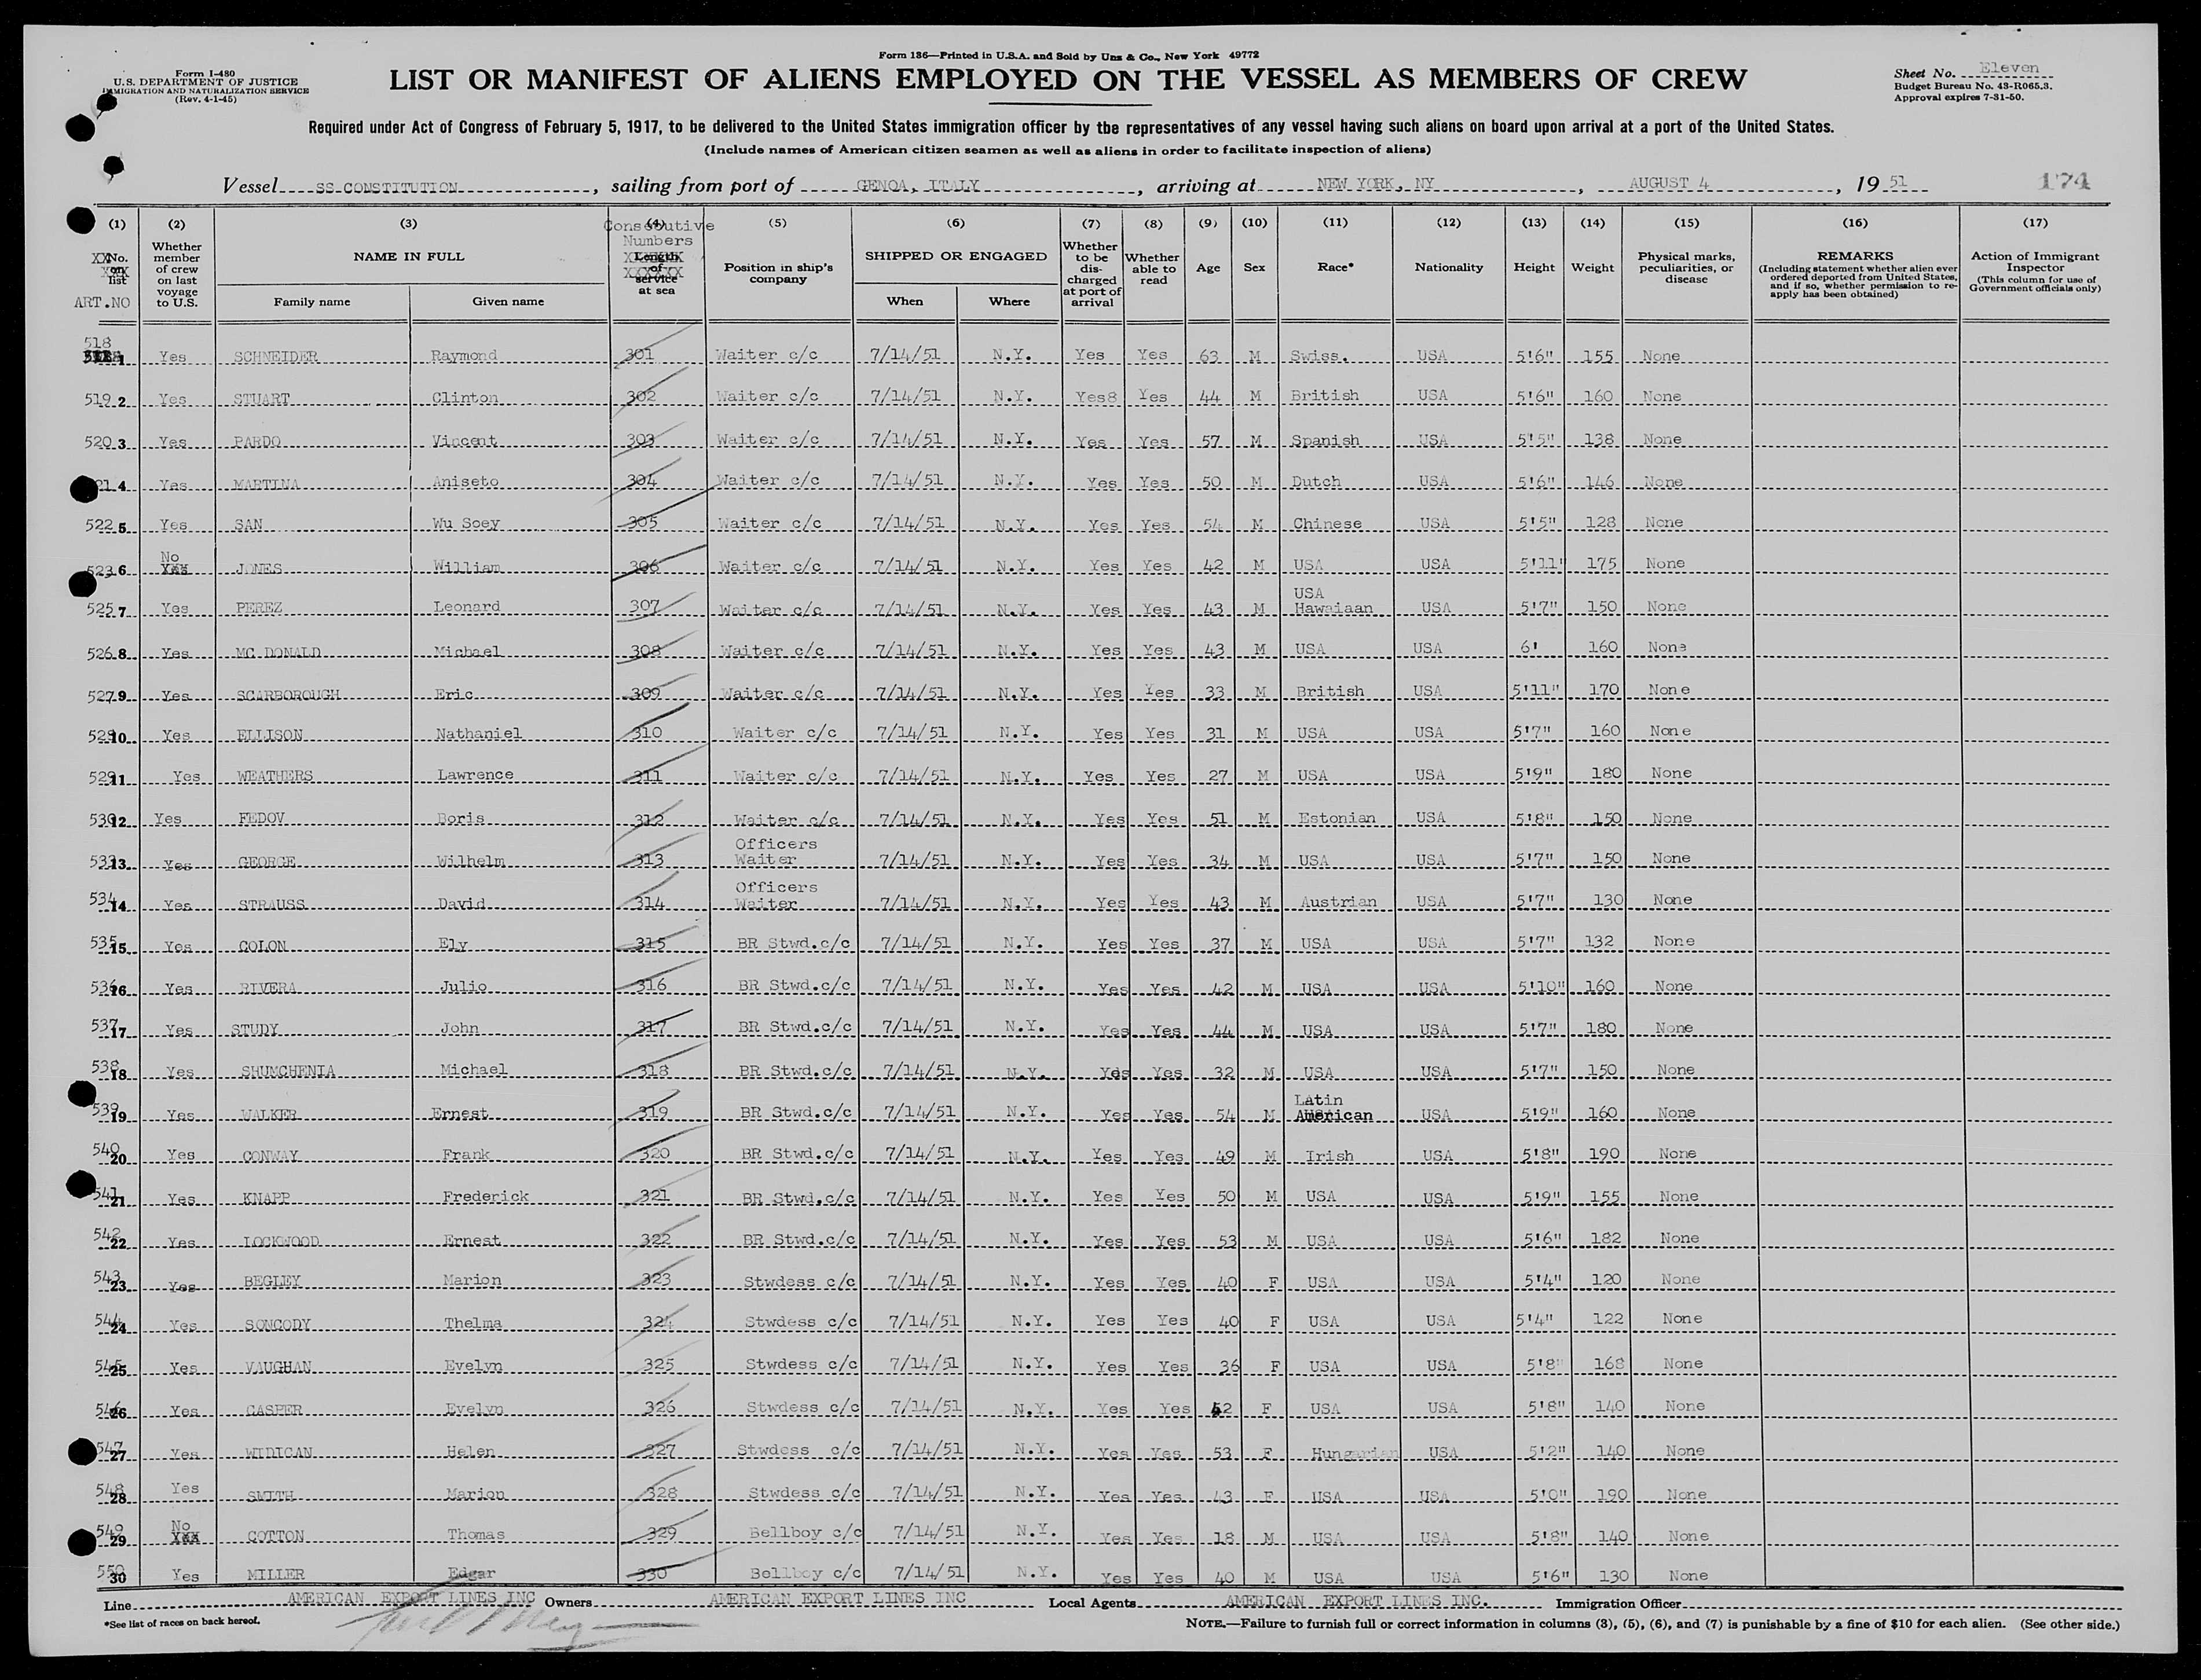 Form 136—Printed in U.S.A. and Sold by Unz & Co., New York 49772
Form I-480
U.S. DEPARTMENT OF JUSTICE
IMMIGRATION AND NATURALIZATION SERVICE
(Rev. 4-1-45)
LIST OR MANIFEST OF ALIENS EMPLOYED ON THE VESSEL AS MEMBERS OF CREW
Sheet No. Eleven
Budget Bureau No. 43-R065.3.
Approval expires 7-31-50.
Required under Act of Congress of February 5, 1917, to be delivered to the United States immigration officer by the representatives of any vessel having such aliens on board upon arrival at a port of the United States.
(Include names of American citizen seamen as well as aliens in order to facilitate inspection of aliens)
Vessel SS CONSTITUTION, sailing from port of GENOA, ITALY, arriving at NEW YORK, NY, AUGUST 4, 1951 174
(1) (2) (3) (4) (5) (6) (7) (8) (9) (10) (11) (12) (13) (14) (15) (16) (17)
No. on list ART.NO
Whether member of crew on last voyage to U.S.
NAME IN FULL
Family name Given name
Consecutive Numbers
Length of service at sea
Position in ship's company
SHIPPED OR ENGAGED
When Where
Whether to be discharged at port of arrival
Whether able to read
Age Sex Race* Nationality Height Weight
Physical marks, peculiarities, or disease
REMARKS
(Including statement whether alien ever ordered deported from United States, and if so, whether permission to re-apply has been obtained)
Action of Immigrant Inspector
(This column for use of Government officials only)
518 1 Yes SCHNEIDER Raymond 301 Waiter c/c 7/14/51 N.Y. Yes Yes 63 M Swiss. USA 5'6" 155 None
519 2 Yes STUART Clinton 302 Waiter c/c 7/14/51 N.Y. Yes8 Yes 44 M British USA 5'6" 160 None
520 3 Yes PARDO Vincent 303 Waiter c/c 7/14/51 N.Y. Yes Yes 57 M Spanish USA 5'5" 138 None
21 4 Yes MARTINA Aniseto 304 Waiter c/c 7/14/51 N.Y. Yes Yes 50 M Dutch USA 5'6" 146 None
522 5 Yes SAN Wu Soey 305 Waiter c/c 7/14/51 N.Y. Yes Yes 54 M Chinese USA 5'5" 128 None
523 6 No JONES William 306 Waiter c/c 7/14/51 N.Y. Yes Yes 42 M USA USA 5'11" 175 None
525 7 Yes PEREZ Leonard 307 Waiter c/c 7/14/51 N.Y. Yes Yes 43 M USA Hawaiaan USA 5'7" 150 None
526 8 Yes MC DONALD Michael 308 Waiter c/c 7/14/51 N.Y. Yes Yes 43 M USA USA 6' 160 None
527 9 Yes SCARBOROUGH Eric 309 Waiter c/c 7/14/51 N.Y. Yes Yes 33 M British USA 5'11" 170 None
528 10 Yes ELLISON Nathaniel 310 Waiter c/c 7/14/51 N.Y. Yes Yes 31 M USA USA 5'7" 160 None
529 11 Yes WEATHERS Lawrence 311 Waiter c/c 7/14/51 N.Y. Yes Yes 27 M USA USA 5'9" 180 None
530 12 Yes FEDOV Boris 312 Waiter c/c 7/14/51 N.Y. Yes Yes 51 M Estonian USA 5'8" 150 None
533 13 Yes GEORGE Wilhelm 313 Officers Waiter 7/14/51 N.Y. Yes Yes 34 M USA USA 5'7" 150 None
534 14 Yes STRAUSS David 314 Officers Waiter 7/14/51 N.Y. Yes Yes 43 M Austrian USA 5'7" 130 None
535 15 Yes COLON Ely 315 BR Stwd.c/c 7/14/51 N.Y. Yes Yes 37 M USA USA 5'7" 132 None
536 16 Yes RIVERA Julio 316 BR Stwd.c/c 7/14/51 N.Y. Yes Yes 42 M USA USA 5'10" 160 None
537 17 Yes STUDY John 317 BR Stwd.c/c 7/14/51 N.Y. Yes Yes 44 M USA USA 5'7" 180 None
538 18 Yes SHUMCHENIA Michael 318 BR Stwd.c/c 7/14/51 N.Y. Yes Yes 32 M USA USA 5'7" 150 None
539 19 Yes WALKER Ernest 319 BR Stwd.c/c 7/14/51 N.Y. Yes Yes 54 M Latin American USA 5'9" 160 None
540 20 Yes CONWAY Frank 320 BR Stwd.c/c 7/14/51 N.Y. Yes Yes 49 M Irish USA 5'8" 190 None
541 21 Yes KNAPP Frederick 321 BR Stwd.c/c 7/14/51 N.Y. Yes Yes 50 M USA USA 5'9" 155 None
542 22 Yes LOCKWOOD Ernest 322 BR Stwd.c/c 7/14/51 N.Y. Yes Yes 53 M USA USA 5'6" 182 None
543 23 Yes BEGLEY Marion 323 Stwdess c/c 7/14/51 N.Y. Yes Yes 40 F USA USA 5'4" 120 None
544 24 Yes SONCODY Thelma 324 Stwdess c/c 7/14/51 N.Y. Yes Yes 40 F USA USA 5'4" 122 None
545 25 Yes VAUGHAN Evelyn 325 Stwdess c/c 7/14/51 N.Y. Yes Yes 36 F USA USA 5'8" 168 None
546 26 Yes CASPER Evelyn 326 Stwdess c/c 7/14/51 N.Y. Yes Yes 42 F USA USA 5'8" 140 None
547 27 Yes WIDICAN Helen 327 Stwdess c/c 7/14/51 N.Y. Yes Yes 53 F Hungarian USA 5'2" 140 None
548 28 Yes SMITH Marion 328 Stwdess c/c 7/14/51 N.Y. Yes Yes 43 F USA USA 5'0" 190 None
549 29 No COTTON Thomas 329 Bellboy c/c 7/14/51 N.Y. Yes Yes 18 M USA USA 5'8" 140 None
550 30 Yes MILLER Edgar 330 Bellboy c/c 7/14/51 N.Y. Yes Yes 40 M USA USA 5'6" 130 None
Line AMERICAN EXPORT LINES INC Owners AMERICAN EXPORT LINES INC Local Agents AMERICAN EXPORT LINES INC. Immigration Officer
*See list of races on back hereof.
NOTE.—Failure to furnish full or correct information in columns (3), (5), (6), and (7) is punishable by a fine of $10 for each alien. (See other side.)